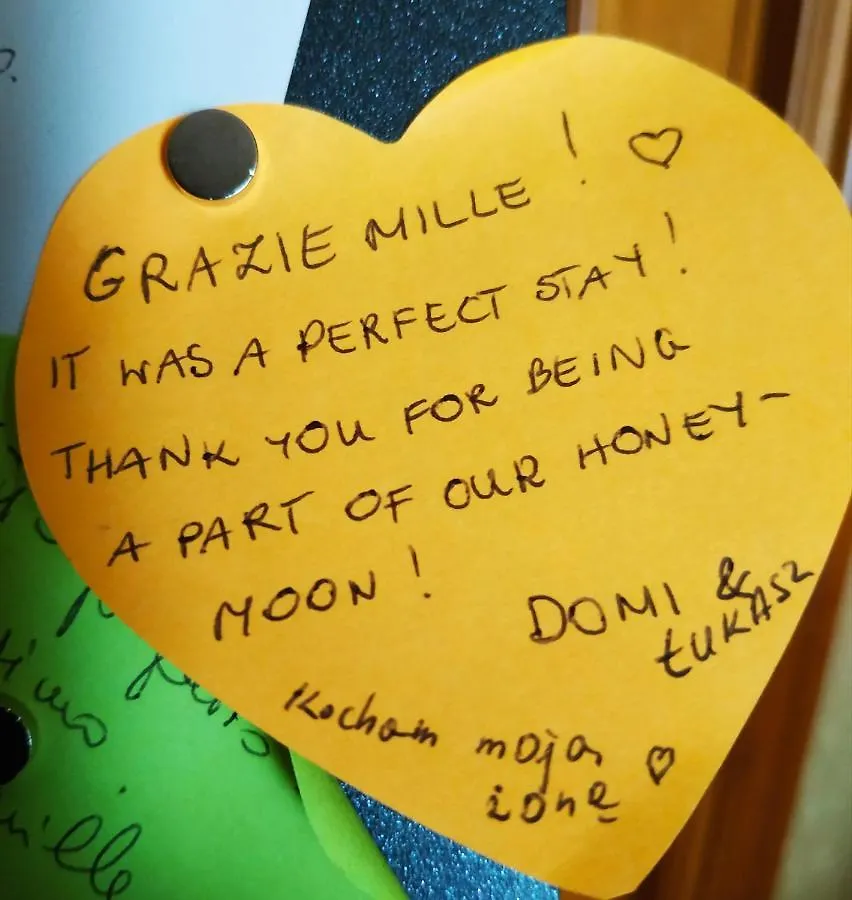 GRAZIE MILLE ! ♡
IT WAS A PERFECT STAY!
THANK YOU FOR BEING
A PART OF OUR HONEY-
MOON !
DOMI &
ŁUKASZ
Kocham moją
żonę ♡
mille